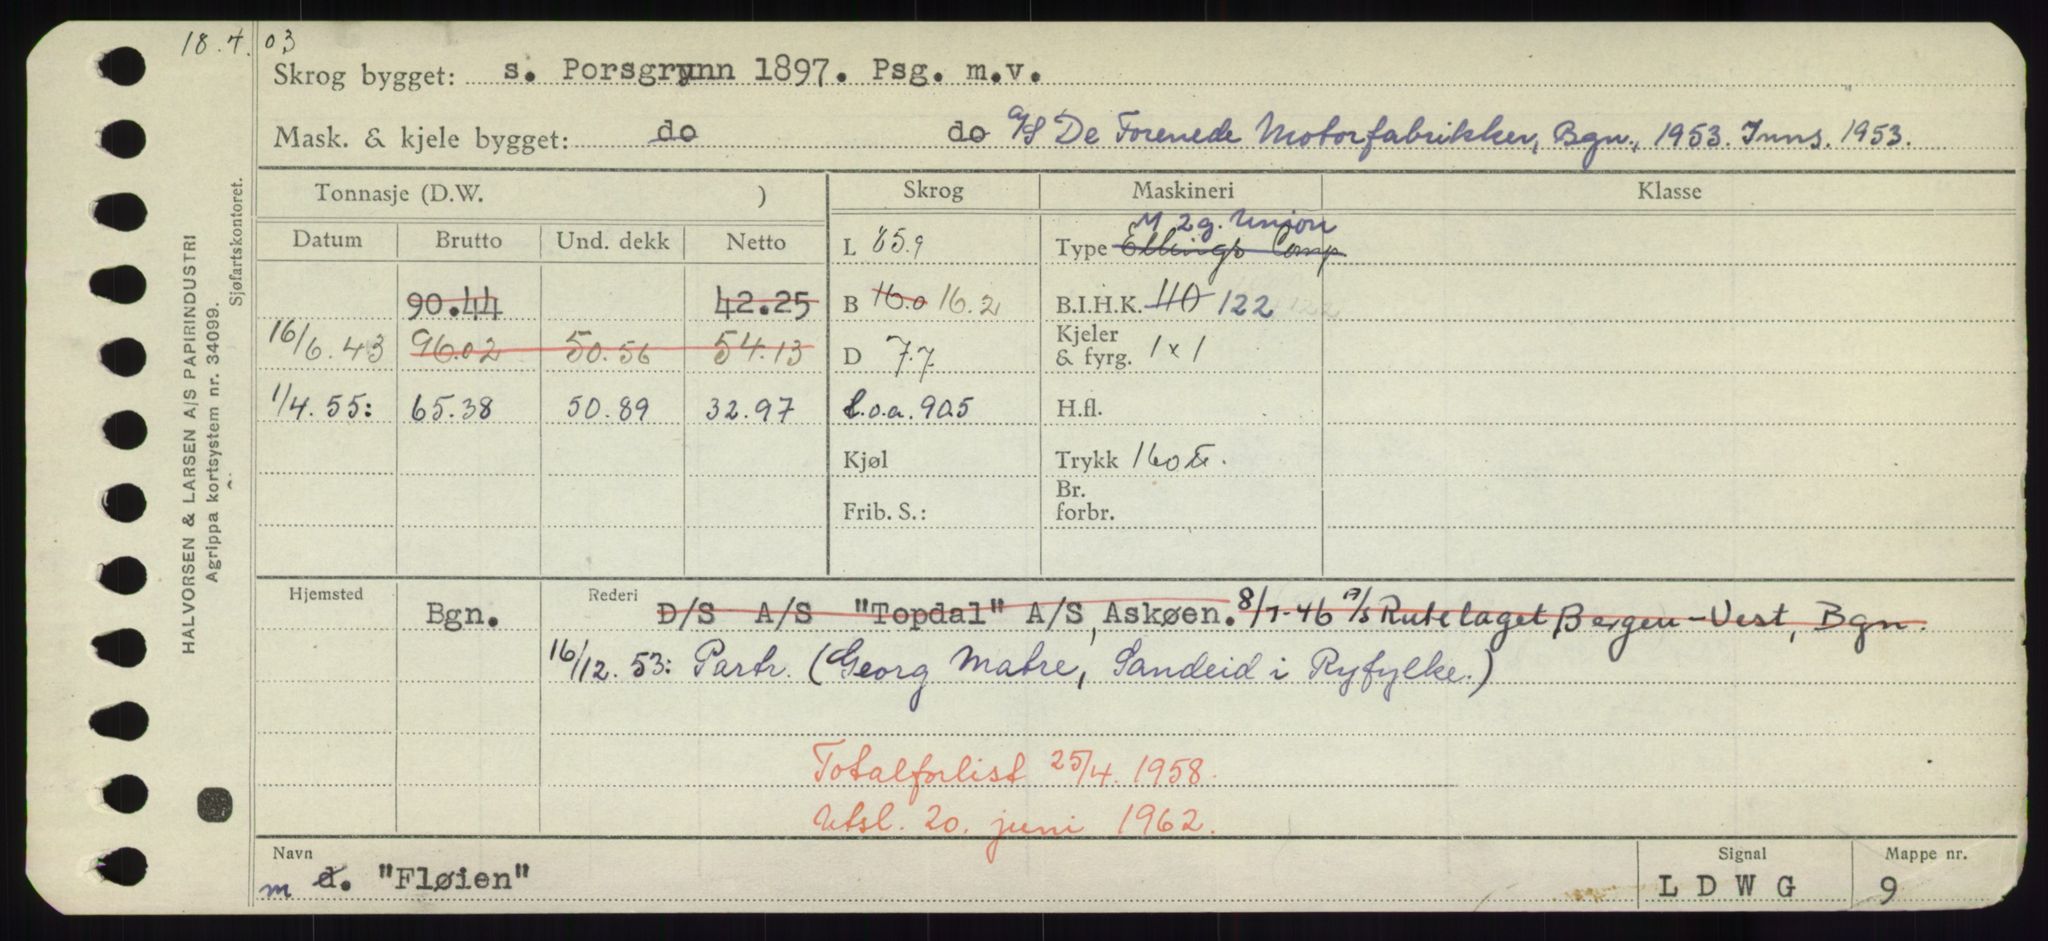 18.4.03
Skrog bygget: s. Porsgrynn 1897. Psg. m.v.
Mask. & kjele bygget: do do A/S De Forenede Motorfabrikker, Bgn., 1953. Inns. 1953.
Tonnasje (D.W. ) Skrog Maskineri Klasse
Datum Brutto Und. dekk Netto
L 85.9 Type Ellings Comp M 2g. Union
90.44 42.25 B 16.0 16.2 B.I.H.K. 110 122
16/6.43 96.02 50.56 54.13 D 7.7 Kjeler & fyrg. 1x1
1/4.55: 65.38 50.89 32.97 l.o.a. 90.5 H.fl.
Kjøl Trykk 160
Frib. S.: Br. forbr.
Hjemsted Bgn. Rederi D/S A/S "Topdal" A/S, Askøen. 8/7-46 A/S Rutelaget Bergen-Vest, Bgn.
16/12.53: Partr. (Georg Matre, Sandeid i Ryfylke.)
Totalforlist 25/4. 1958.
Utsl. 20. juni 1962.
Navn Signal Mappe nr.
m d. "Fløien" L D W G 9
HALVORSEN & LARSEN A/S PAPIRINDUSTRI
Agrippa kortsystem nr. 34099.
Sjøfartskontoret.